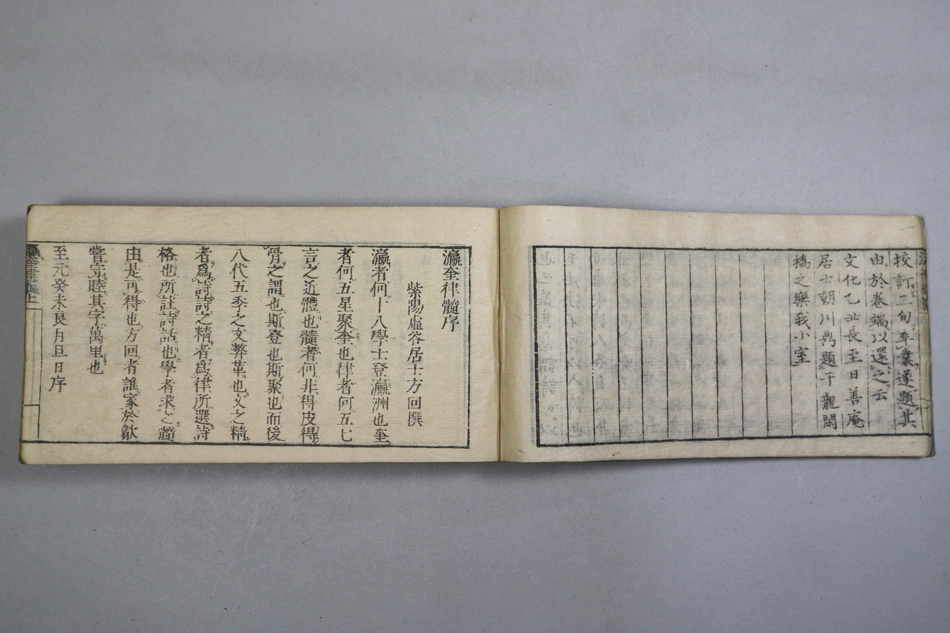 校訂二旬卒業遂題其
由於卷端以還之云
文化乙丑長至日善庵
居士朝川鼎題于龍閑
橋之樂我小室
瀛奎律髓序
紫陽虛谷居士方回撰
瀛者何十八學士登瀛洲也奎
者何五星聚奎也律者何五七
言之近體也髓者何非得皮得
骨之謂也斯登也斯聚也而後
八代五季之文弊革也文之精
者爲詩詩之精者爲律所選詩
格也所註詩話也學者求之髓
由是可得也方回者誰家於歙
嘗守睦其字萬里也
至元癸未良月旦日序